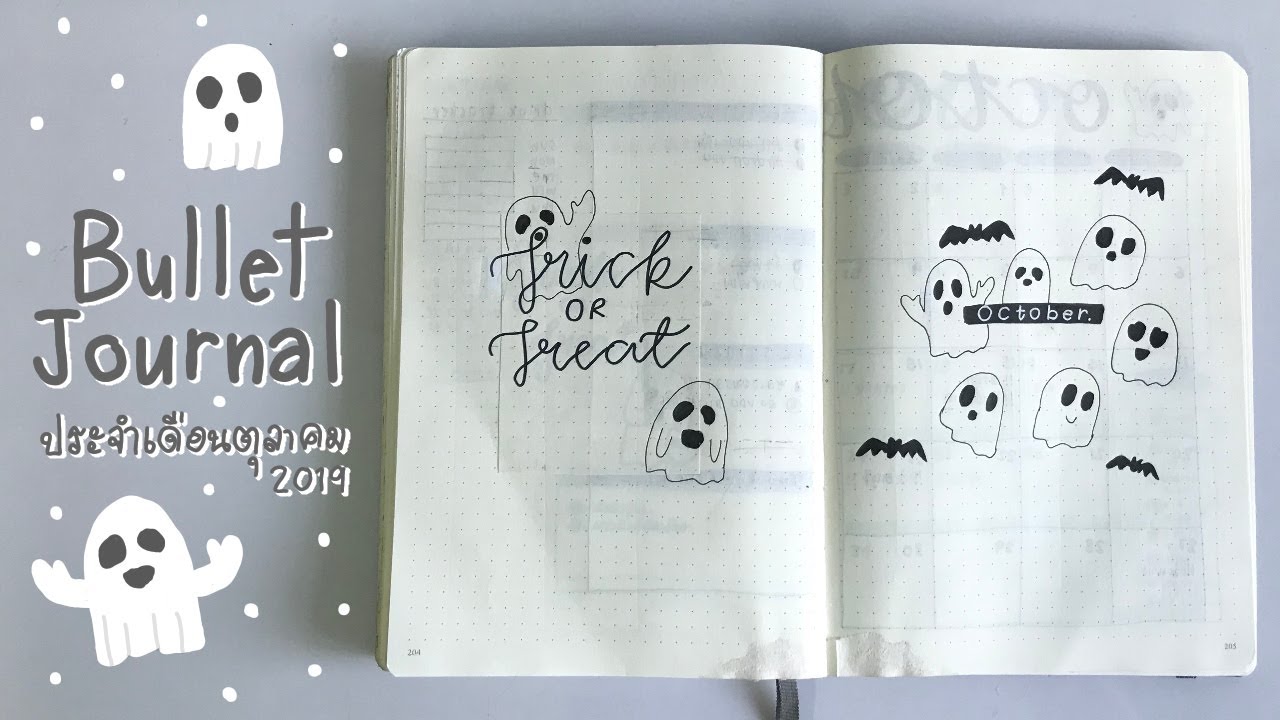 Bullet
Journal
ประจำเดือนตุลาคม
2019
Trick
OR
Treat
204
October.
205